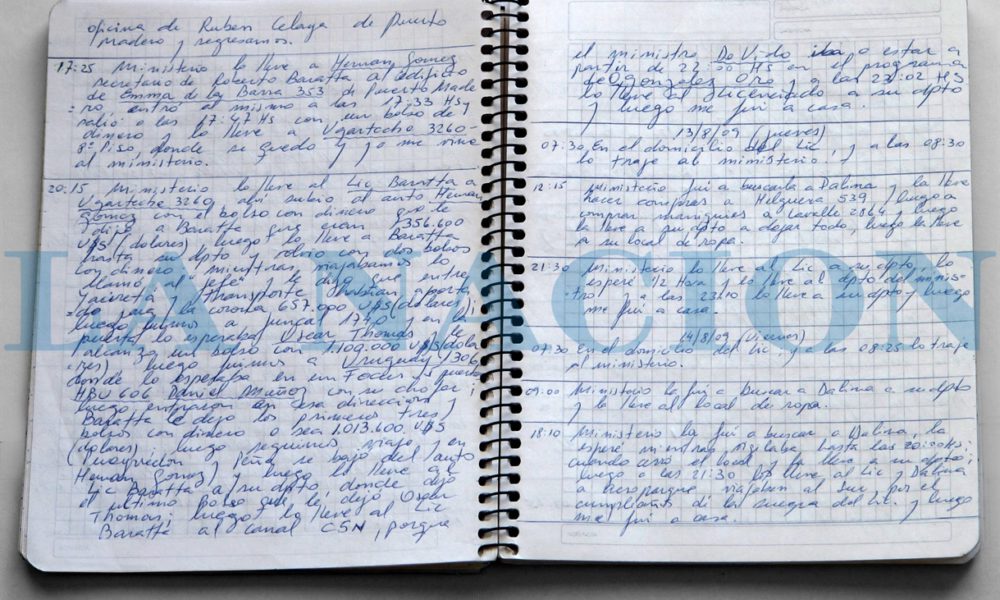 oficina de Ruben Celaya de Puerto
Madero y regresamos.
17:25 Ministerio lo lleve a Hernan Gomez
secretario de Roberto Baratta al edificio
de Emma de la Barra 353 de Puerto Made
=ro entró al mismo a las 17:33 Hs y
salio a las 17:47 Hs con un bolso de
dinero y lo lleve a Ugarteche 3260-
8º Piso, donde se quedo y yo me vine
al ministerio.
20:15 Ministerio lo lleve al Lic Baratta a
Ugarteche 3260 ahi subio al auto Hernan
Gomez con el bolso con dinero que le
dijo a Baratta que eran 356.600
U$S (dolares) luego lo lleve a Baratta
hasta su dpto y volvio con dos bolsos
con dinero y mientras viajabamos lo
llamo al jefe y le dijo que entre
Yacireta y transporte aporta
=do para la corona 657.000 U$S (dolares);
luego fuimos a Juncal 17 y en la
puerta lo esperaba Oscar Thomas y le
alcanza un bolso con 1.109.000 U$S (dola
res) luego fuimos a Uruguay 1306
donde lo esperaba en un Focus
HBU 606 Daniel Muñoz con su chofer;
luego entraron en esa direccion y
Baratta le dejo los primeros tres
bolsos con dinero o sea 1.013.600 U$S
(dolares) luego seguimos viaje y en
Pueyrredon y Peña se bajó del auto
Hernan Gomez y luego lo lleve al
Lic Baratta a su dpto, donde dejó
el ultimo bolso que le dejó Oscar
Thomas, luego lo lleve al Lic
Baratta al canal C5N, porque
el ministro De Vido iba a estar a
partir de 22:00 HS en el programa
de Gonzalez Oro y a las 23:02 HS
lo lleve al licenciado a su dpto
y luego me fui a casa.
13/8/09 (jueves)
07:30 En el domicilio del Lic, y a las 08:30
lo traje al ministerio.
12:15 Ministerio fui a buscarla a Dalina y la lleve
hacer compras a Helguera 539 y luego a
comprar maniquies a Lavalle 2864 y luego
la lleve a su dpto a dejar todo, luego la lleve
a su local de ropa.
21:30 Ministerio lo lleve al Lic a su dpto, lo
esperé 1/2 Hora y lo lleve al dpto del minis=
tro; a las 23:10 lo lleve a su dpto y luego
me fui a casa.
14/8/09 (Viernes)
07:30 En el domicilio del Lic. y a las 08:25 lo traje
al ministerio.
09:00 Ministerio la fui a buscar a Dalina a su dpto
y la lleve al local de ropa.
18:10 Ministerio la fui a buscar a Dalina, la
esperé mientras hasta las 20:20 Hs;
cuando cerró el local y la lleve a su dpto;
luego a las 21:30 lleve al Lic y Dalina
a Aeroparque viajaban al Sur por el
cumpleaños de la suegra del Lic. y luego
me fui a casa.
LA NACION